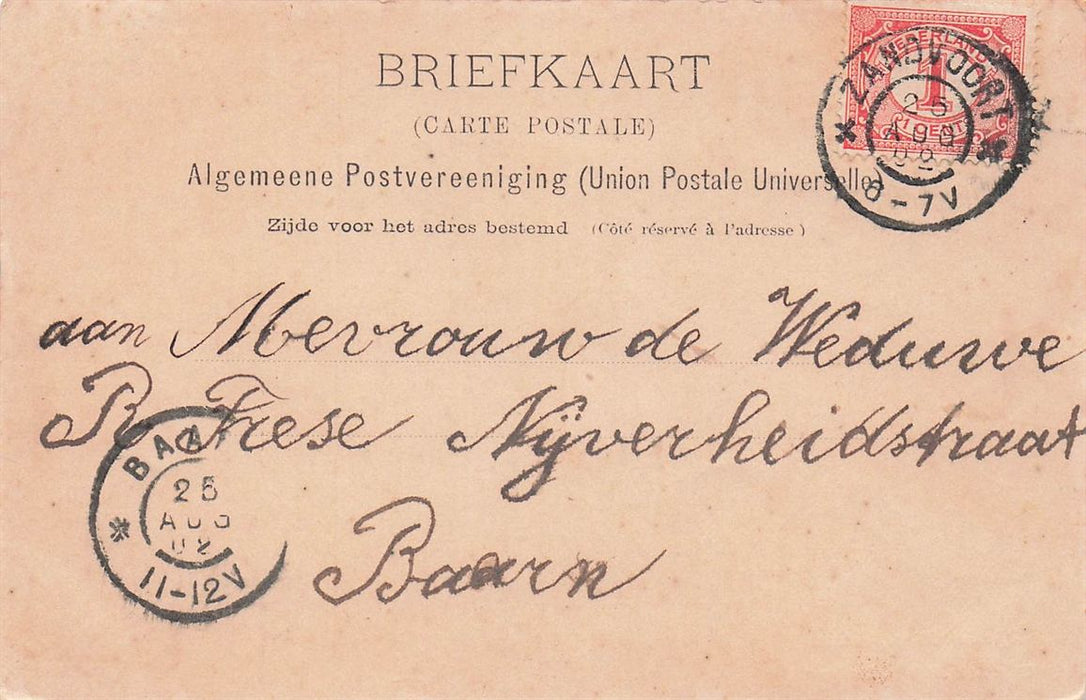 BRIEFKAART
(CARTE POSTALE)
Algemeene Postvereeniging (Union Postale Universelle)
Zijde voor het adres bestemd (Côté réservé à l'adresse)
NEDERLAND
1
1 CENT
ZANDVOORT
25
AUG
02
6-7V
aan Mevrouw de Weduwe
R Frese Nijverheidstraat
Baarn
BAA
25
AUG
02
11-12V